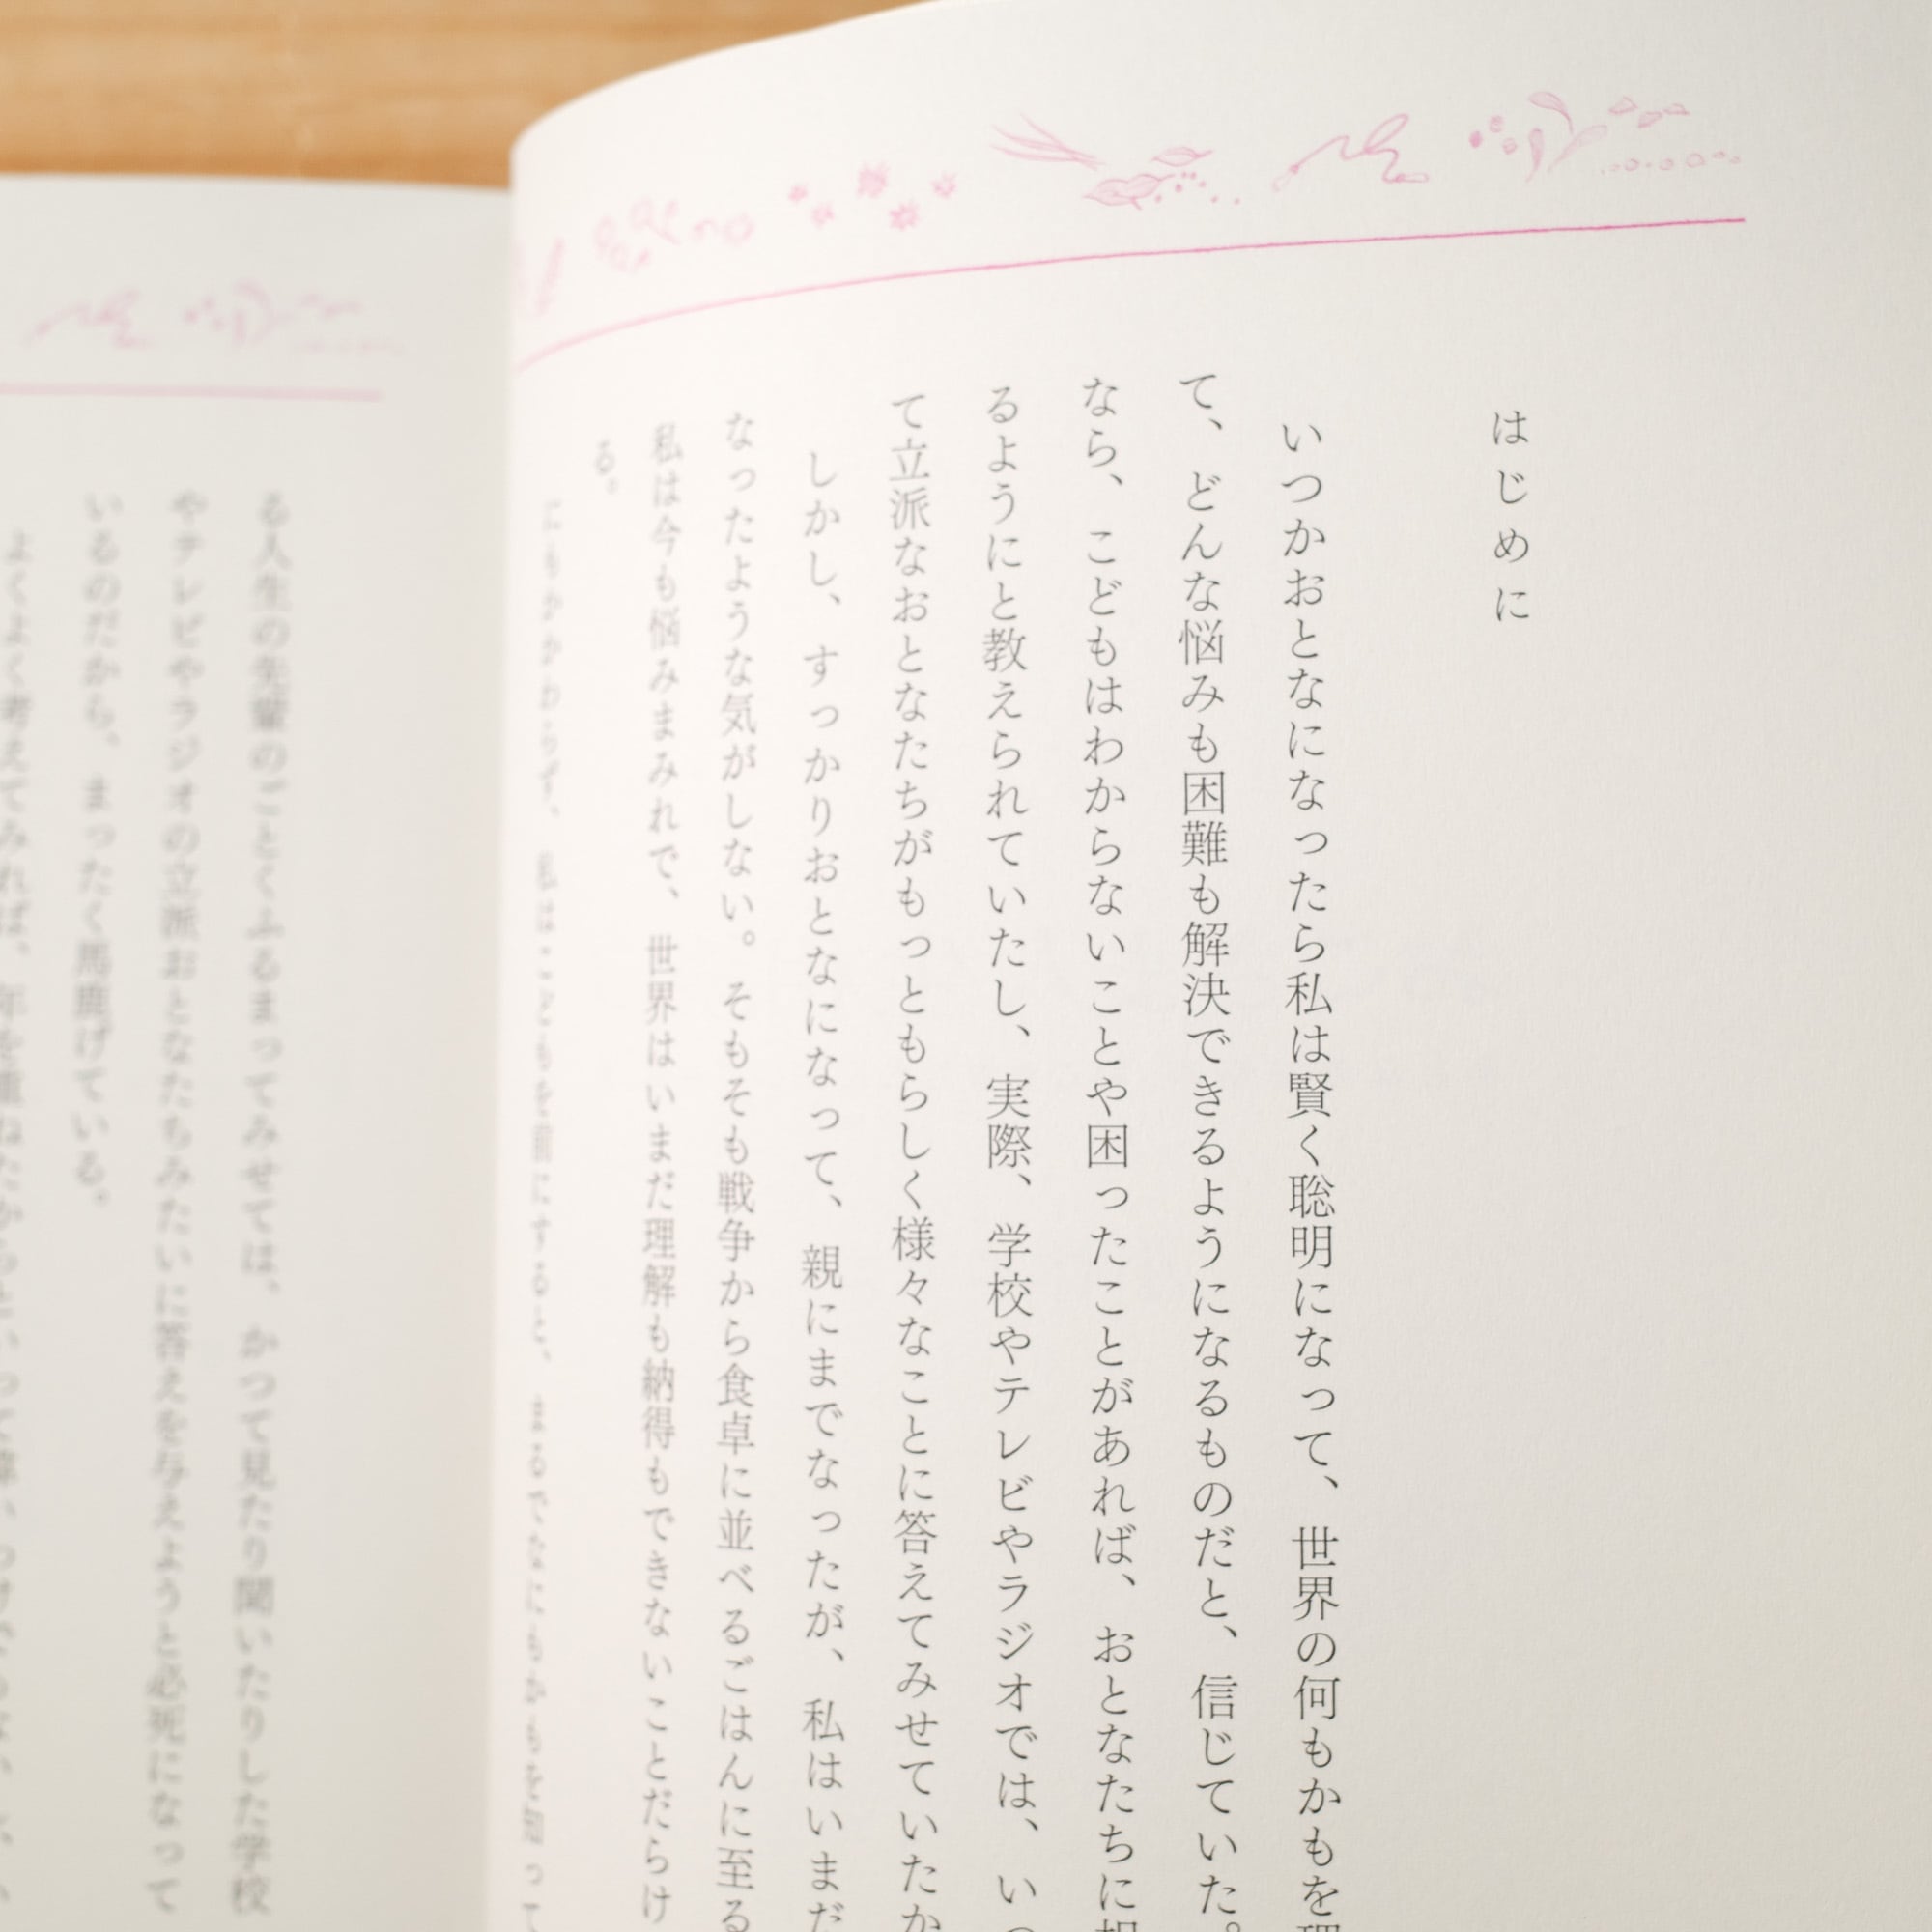 はじめに
いつかおとなになったら私は賢く聡明になって、世界の何もかもを理
て、どんな悩みも困難も解決できるようになるものだと、信じていた。
なら、こどもはわからないことや困ったことがあれば、おとなたちに
るようにと教えられていたし、実際、学校やテレビやラジオでは、いつ
て立派なおとなたちがもっともらしく様々なことに答えてみせていたか
しかし、すっかりおとなになって、親にまでなったが、私はいまだ
なったような気がしない。そもそも戦争から食卓に並べるごはんに至る
私は今も悩みまみれで、世界はいまだ理解も納得もできないことだらけ
る。
にもかかわらず、私はこどもを前にすると、まるでなにもかもを知って
る人生の先輩のごとくふるまってみせては、かつて見たり聞いたりした学校
やテレビやラジオの立派おとなたちみたいに答えを与えようと必死になって
いるのだから、まったく馬鹿げている。
よくよく考えてみれば、年を重ねたからといって偉い